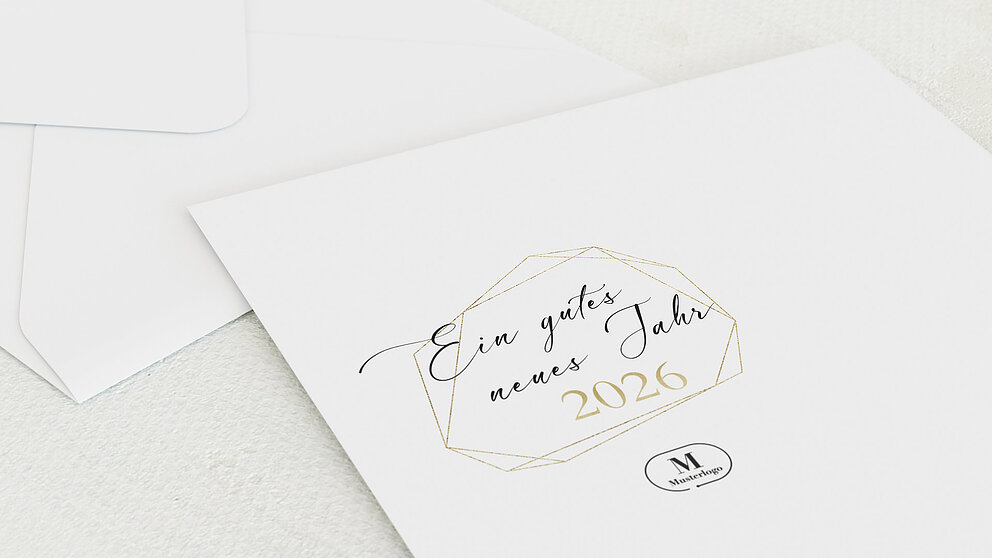 Ein gutes
neues Jahr
2026
M
Musterlogo